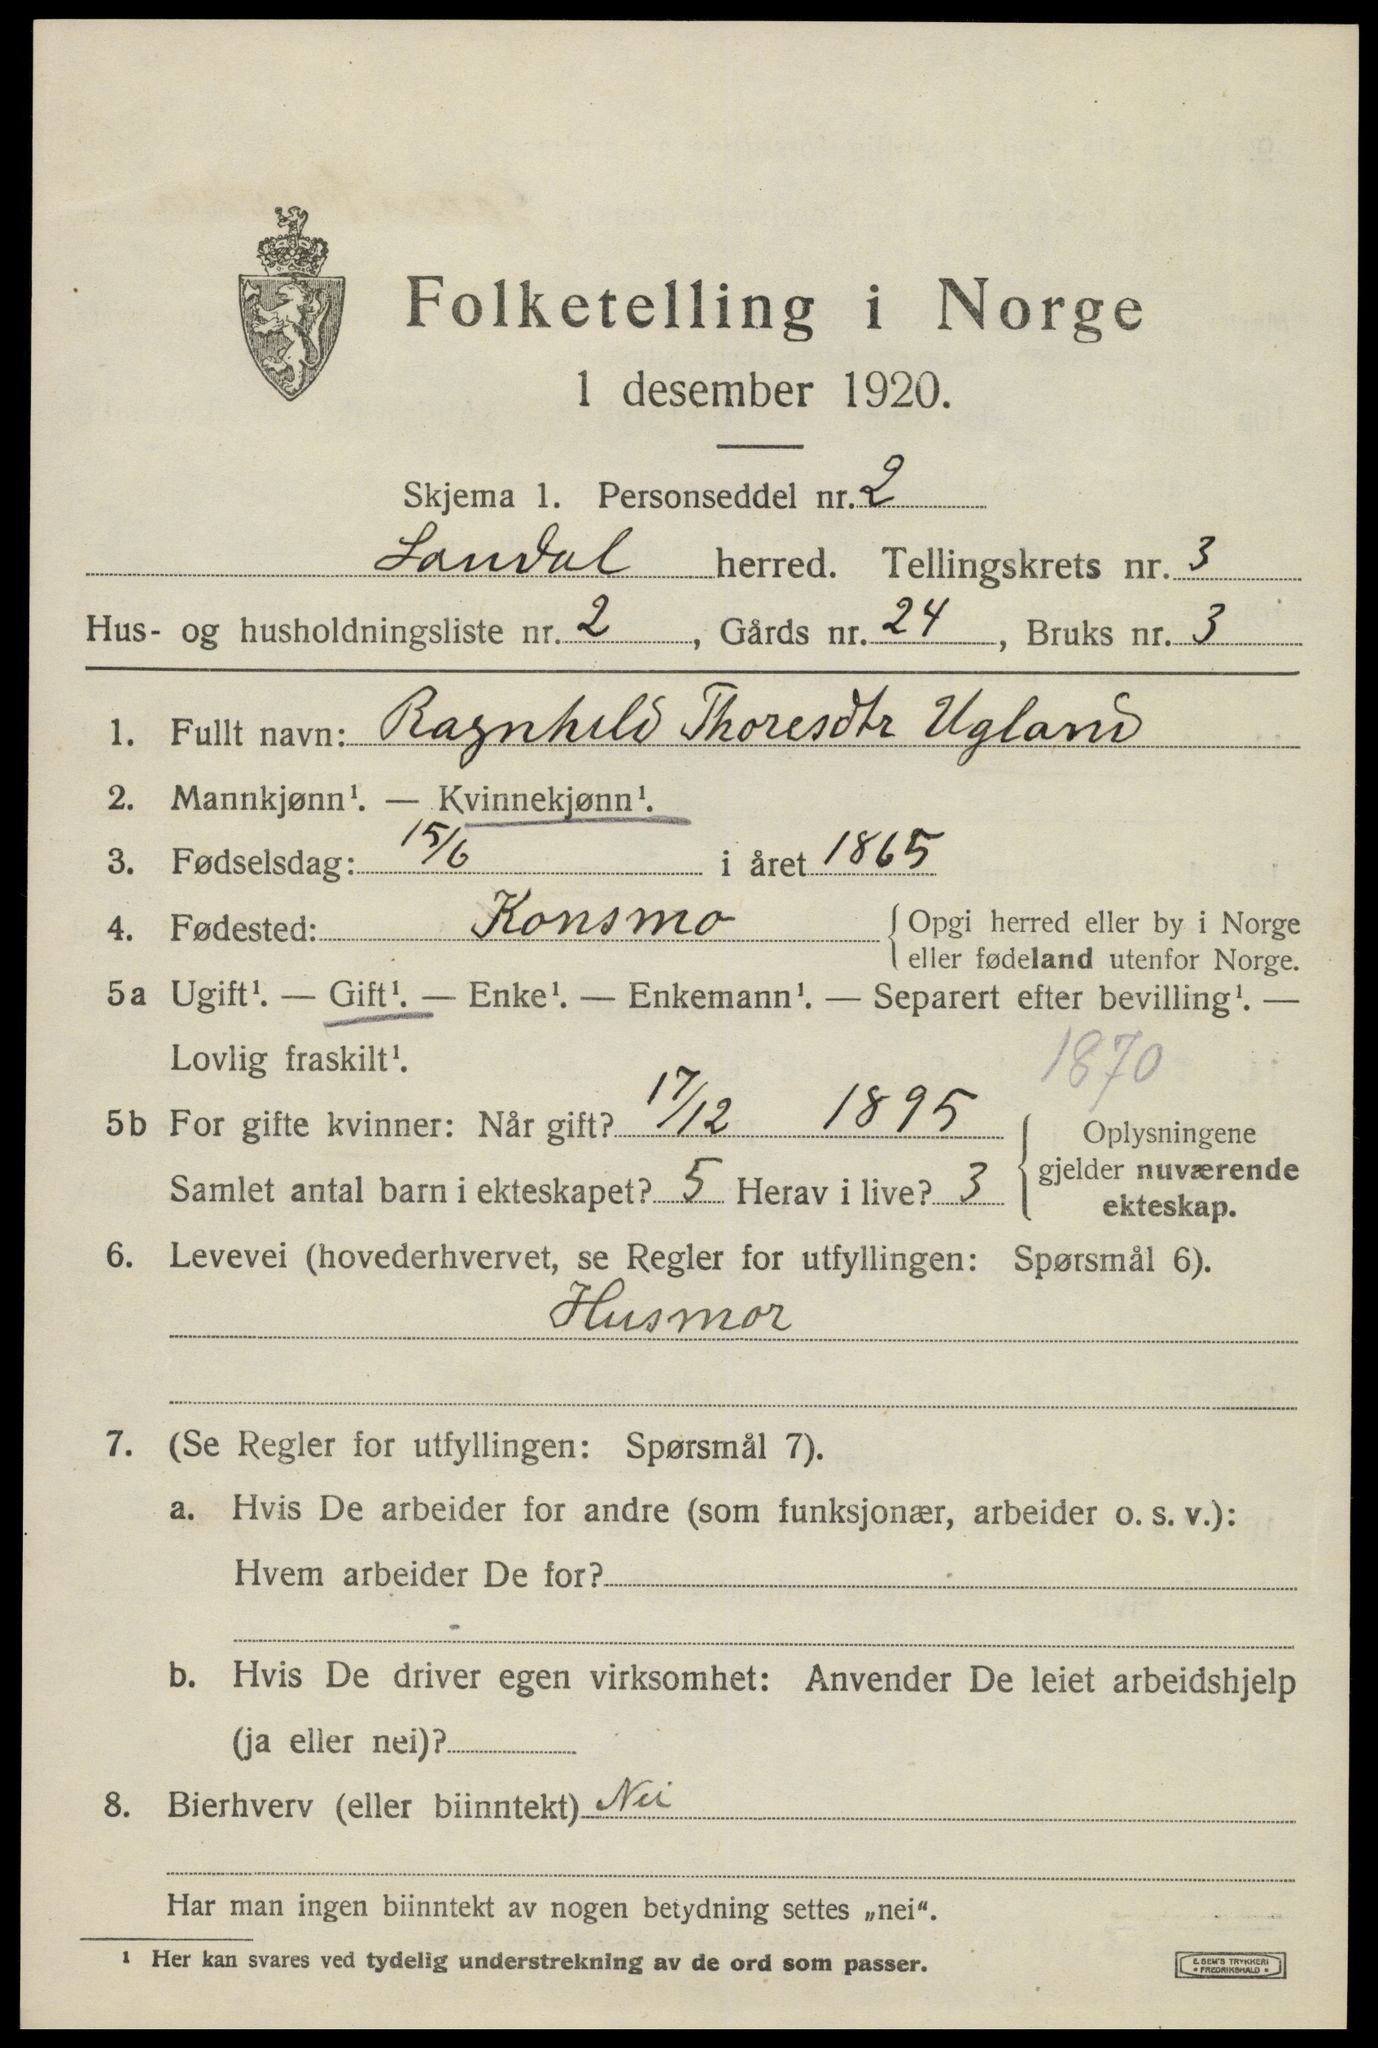 Folketelling i Norge
1 desember 1920.
Skjema 1. Personseddel nr. 2
Laudal herred. Tellingskrets nr. 3
Hus- og husholdningsliste nr. 2, Gårds nr. 24, Bruks nr. 3
1. Fullt navn: Ragnhild Thoresdtr Ugland
2. Mannkjønn¹. — Kvinnekjønn¹.
3. Fødselsdag: 15/6 i året 1865
4. Fødested: Konsmo { Opgi herred eller by i Norge
eller fødeland utenfor Norge.
5a Ugift¹. — Gift¹. — Enke¹. — Enkemann¹. — Separert efter bevilling¹. —
Lovlig fraskilt¹. 1870
5b For gifte kvinner: Når gift? 17/12 1895 { Oplysningene
gjelder nuværende
Samlet antal barn i ekteskapet? 5 Herav i live? 3
ekteskap.
6. Levevei (hovederhvervet, se Regler for utfyllingen: Spørsmål 6).
Husmor
7. (Se Regler for utfyllingen: Spørsmål 7).
a. Hvis De arbeider for andre (som funksjonær, arbeider o. s. v.):
Hvem arbeider De for?
b. Hvis De driver egen virksomhet: Anvender De leiet arbeidshjelp
(ja eller nei)?
8. Bierhverv (eller biinntekt) Nei
Har man ingen biinntekt av nogen betydning settes „nei“.
¹ Her kan svares ved tydelig understrekning av de ord som passer.
E. SEM'S TRYKKERI
• FREDRIKSHALD •